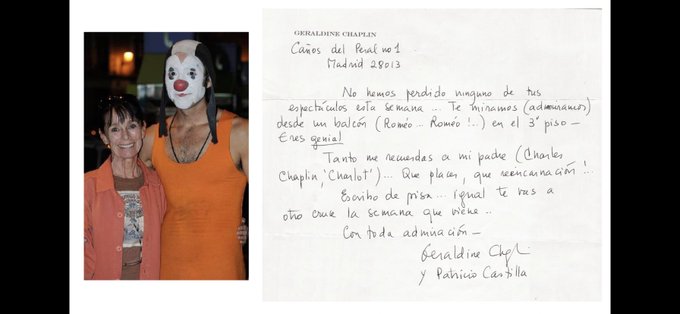 GERALDINE CHAPLIN
Caños del Peral nº 1
Madrid 28013
No hemos perdido ninguno de tus
espectáculos esta semana... Te miramos (admiramos)
desde un balcón (Roméo.. Roméo!..) en el 3º piso —
Eres genial
Tanto me recuerdas a mi padre (Charles
Chaplin, 'Charlot')... Que placer, que reencarnación!..
Escribo de prisa... igual te vas a
otro cruce la semana que viene..
Con toda admiración —
Geraldine Chaplin
y Patricio Castilla